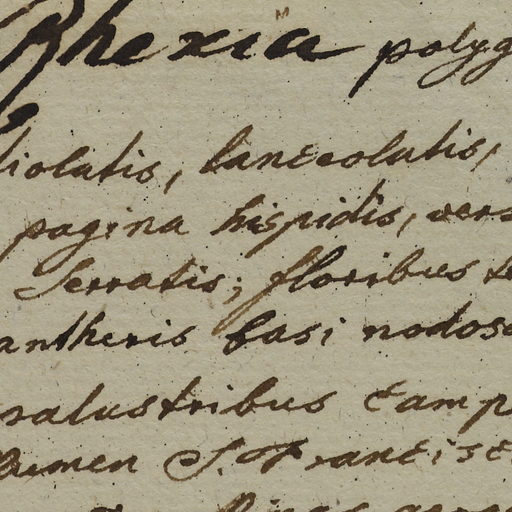 Rhexia polyg
tiolatis, lanceolatis,
pagina hispidis, vers
Serratis; floribus te
antheris basi nodoso
ralustribus Camp
lumen S. Francisc